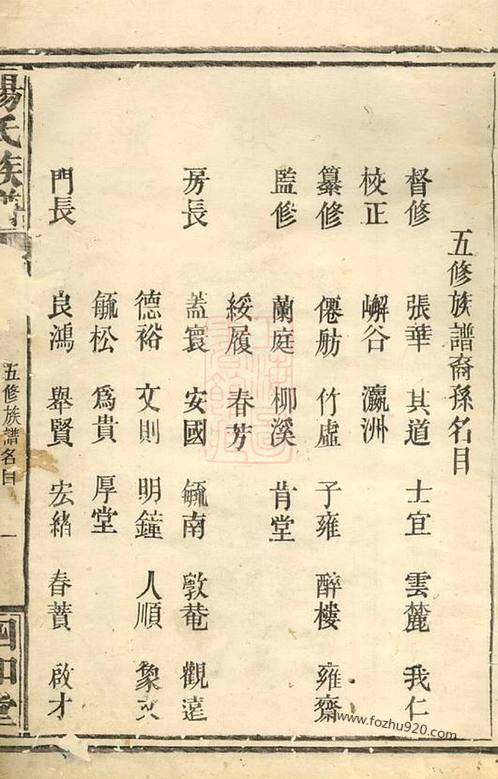 五修族譜裔孫名目
督修 張華 其道 士宜 雲麓 我仁
校正 嶰谷 瀛洲
纂修 僊舫 竹虛 子雍 醉樓 雍齋
監修 蘭庭 柳溪 肯堂
綏履 春芳
房長 蓋寰 安國 毓南 敦菴 觀遠
德裕 文則 明鐘 人順 象
毓松 為貴 厚堂
門長 良鴻 舉賢 宏緒 春蕡 啟才
楊氏族譜
五修族譜名目 一
堂
www.fozhu920.com